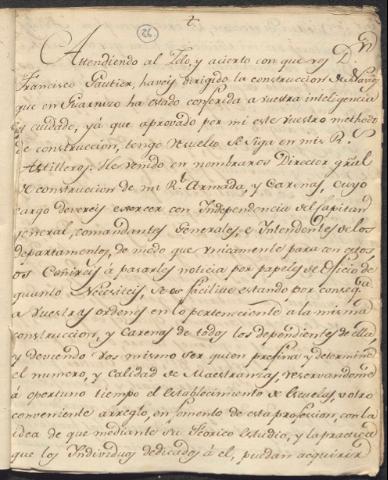 +
26
Attendiendo al Zelo, y acierto con que vos Dn
Francisco Gautier, haveis dirigido la construccion de Navios
que en Guarnizo ha estado conferida a vuestra inteligencia
y cuidado, y á que aprovado por mi este vuestro methodo
de construccion, tengo resuelto se siga en mis Rs
Astilleros. He venido en nombraros Director gral
de construccion de mi Rl Armada, y Carenas, cuyo
cargo devereis exercer con Independencia del Capitan
general, comandantes Generales, e Intendentes de los
departamentos, de modo que unicamente para con estos
os ceñireis á pasarles noticia por papeles de Oficio de
quanto Necesiteis, se os facilite estando por
a vuestras ordenes en lo perteneciente a la misma
construccion, y Carenas de todos los dependientes de ella,
y deviendo vos mismo ser quien prefina y determine
el numero, y calidad de Maestranza, reservandome
á oportuno tiempo el establecimiento de Escuelas, u otro
conveniente arreglo, en fomento de esta profesion, con la
idea de que mediante su Teorico estudio, y la practica
que los Individuos dedicados á el, puedan adquirir